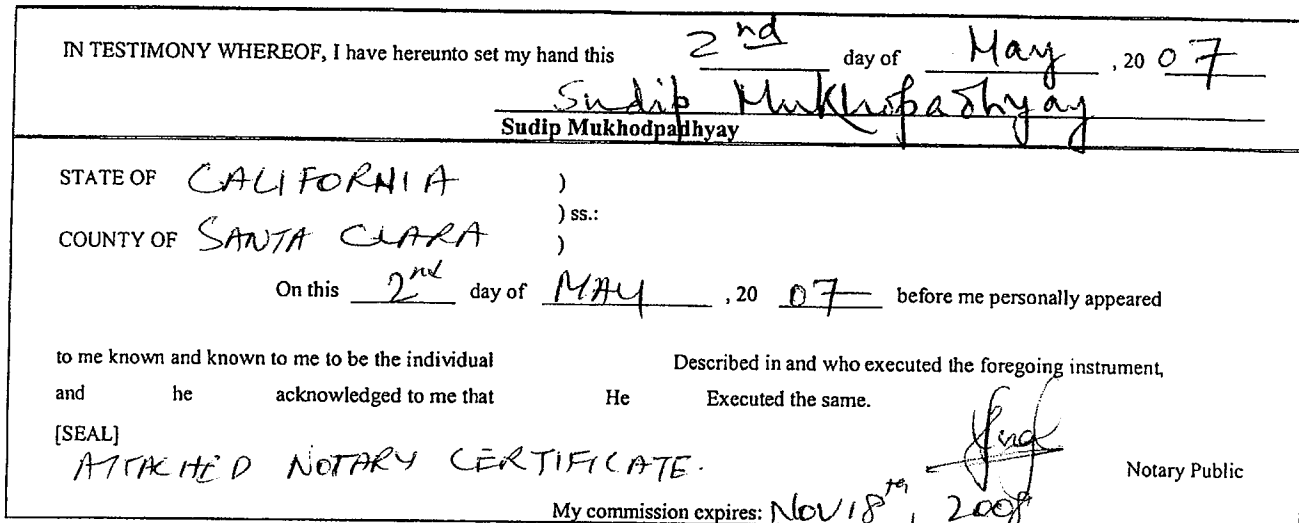 IN TESTIMONY WHEREOF, I have hereunto set my hand this 2nd day of May , 20 07
Sudip Mukhopadhyay
Sudip Mukhodpadhyay
STATE OF CALIFORNIA )
) ss.:
COUNTY OF SANTA CLARA )
On this 2nd day of MAY , 20 07 before me personally appeared
to me known and known to me to be the individual Described in and who executed the foregoing instrument,
and he acknowledged to me that He Executed the same.
[SEAL]
ATTACHED NOTARY CERTIFICATE.
Notary Public
My commission expires: NOV 18th, 2008